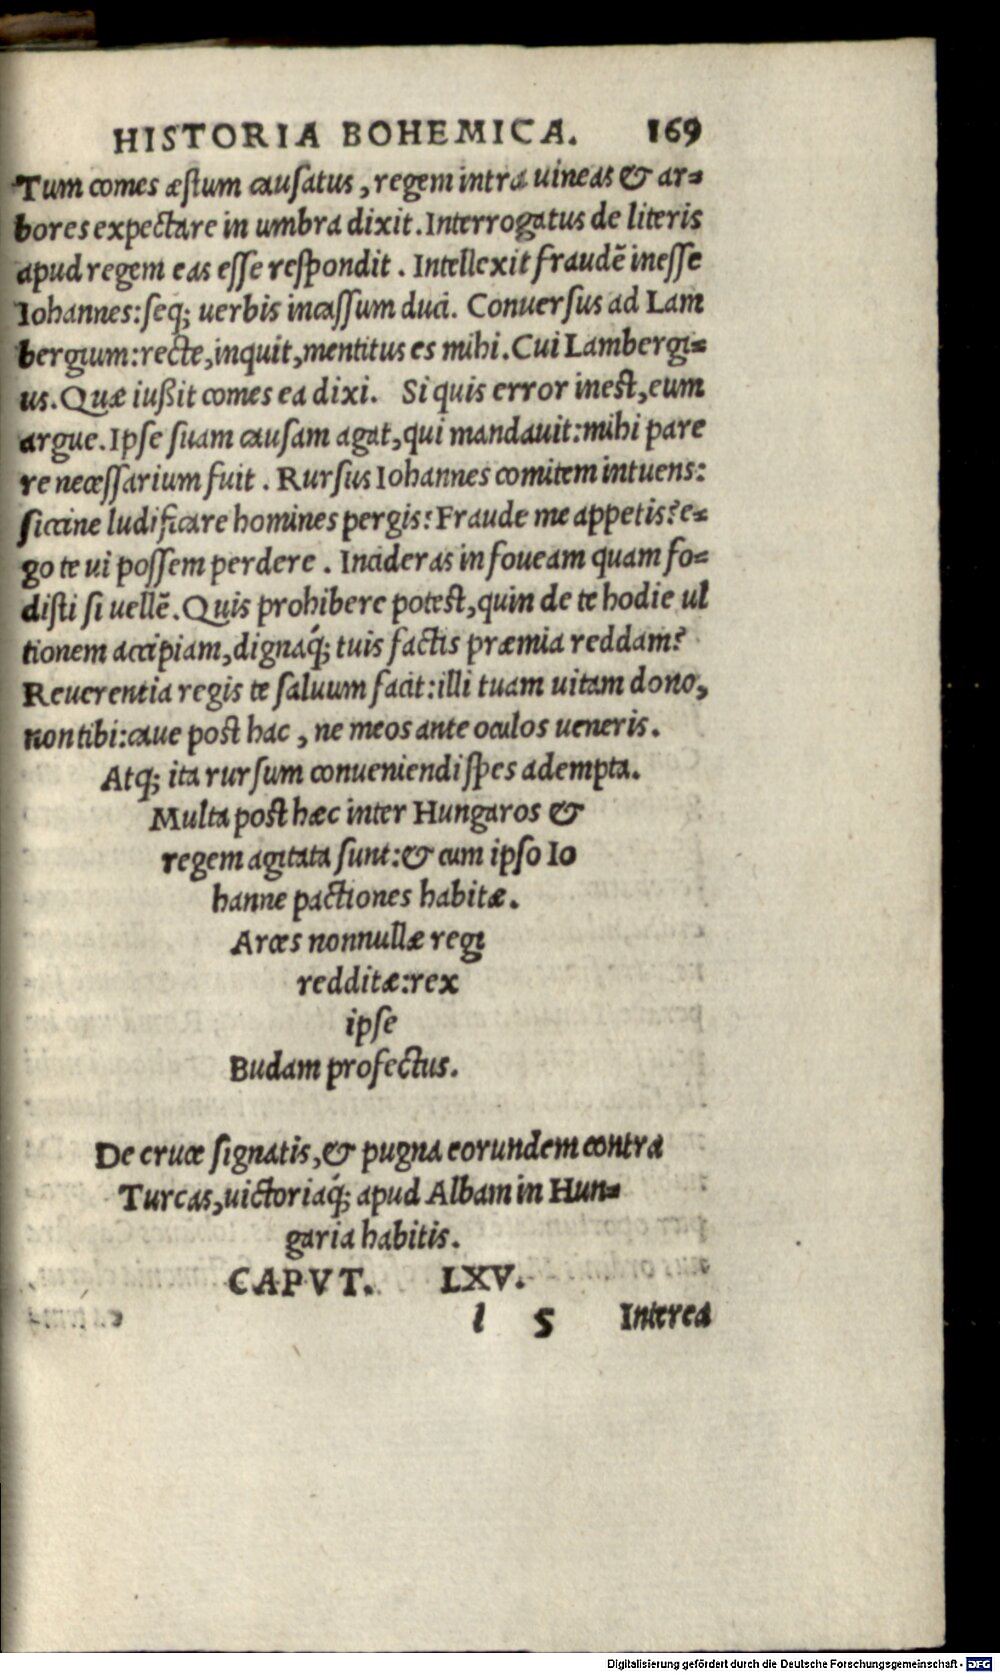 HISTORIA BOHEMICA. 169
Tum comes æstum causatus, regem intra uineas & ar=
bores expectare in umbra dixit. Interrogatus de literis
apud regem eas esse respondit. Intellexit fraudē inesse
Iohannes: seq; uerbis incassum duci. Conuersus ad Lam
bergium: recte, inquit, mentitus es mihi. Cui Lambergi=
us. Quæ iußit comes ea dixi. Si quis error inest, eum
argue. Ipse suam causam agat, qui mandauit: mihi pare
re necessarium fuit. Rursus Iohannes comitem intuens:
siccine ludificare homines pergis? Fraude me appetis? e=
go te ui possem perdere. Incideras in foueam quam fo=
disti si uellē. Quis prohibere potest, quin de te hodie ul
tionem accipiam, dignaq́; tuis factis præmia reddam?
Reuerentia regis te saluum facit: illi tuam uitam dono,
non tibi: caue post hac, ne meos ante oculos ueneris.
Atq; ita rursum conueniendi spes adempta.
Multa post hæc inter Hungaros &
regem agitata sunt: & cum ipso Io
hanne pactiones habitæ.
Arces nonnullæ regi
redditæ: rex
ipse
Budam profectus.
De cruce signatis, & pugna eorundem contra
Turcas, uictoriaq́; apud Albam in Hun=
garia habitis.
CAPVT. LXV.
l 5 Interea
Digitalisierung gefördert durch die Deutsche Forschungsgemeinschaft - DFG